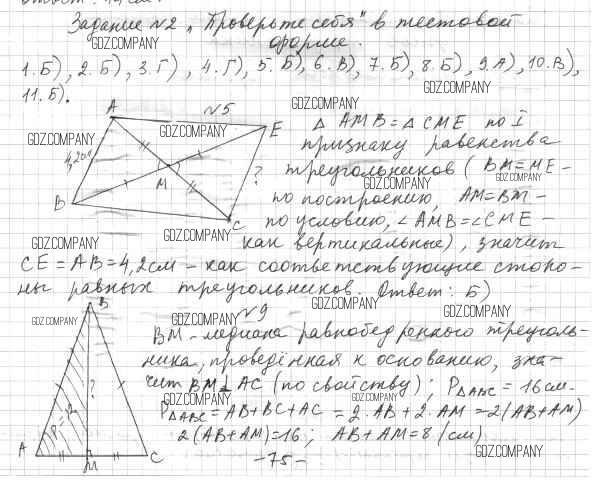 Задание №2 "Проверьте себя" в тестовой
форме.
GDZ.COMPANY
1.Б), 2.Б), 3.Г), 4.Г), 5.Б), 6.В), 7.Б), 8.Б), 9.А), 10.В),
GDZ.COMPANY
11.Б).
№5
GDZ.COMPANY
A
E
GDZ.COMPANY
GDZ.COMPANY
4,2см
M
?
B
C
△ AMB = △ CME по I
признаку равенства
треугольников (BM=ME -
GDZ.COMPANY
по построению, AM=BM -
GDZ.COMPANY
по условию, ∠AMB=∠CME -
GDZ.COMPANY
GDZ.COMPANY
как вертикальные), значит
CE = AB = 4,2см - как соответствующие сторо-
ны равных треугольников. Ответ: Б)
GDZ.COMPANY
GDZ.COMPANY
№9
GDZ.COMPANY
GDZ.COMPANY
B
?
P=12
A
M
C
BM - медиана равнобедренного треуголь-
ника, проведённая к основанию, зна-
чит BM⊥AC (по свойству); P△ABC = 16см.
GDZ.COMPANY
GDZ.COMPANY
P△ABC = AB+BC+AC = 2·AB+2·AM = 2(AB+AM)
2(AB+AM)=16; AB+AM=8 (см)
GDZ.COMPANY
-75-